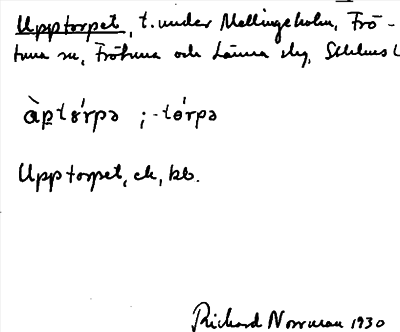 Upptorpet, t. under Mellingeholm, Frö-
tuna sn, Frötuna och Länna slg, Sthlms l
àp̀tɵ́rpə ; -tɵ́rpə
Upptorpet, ek, kb.
Richard Norrman 1930